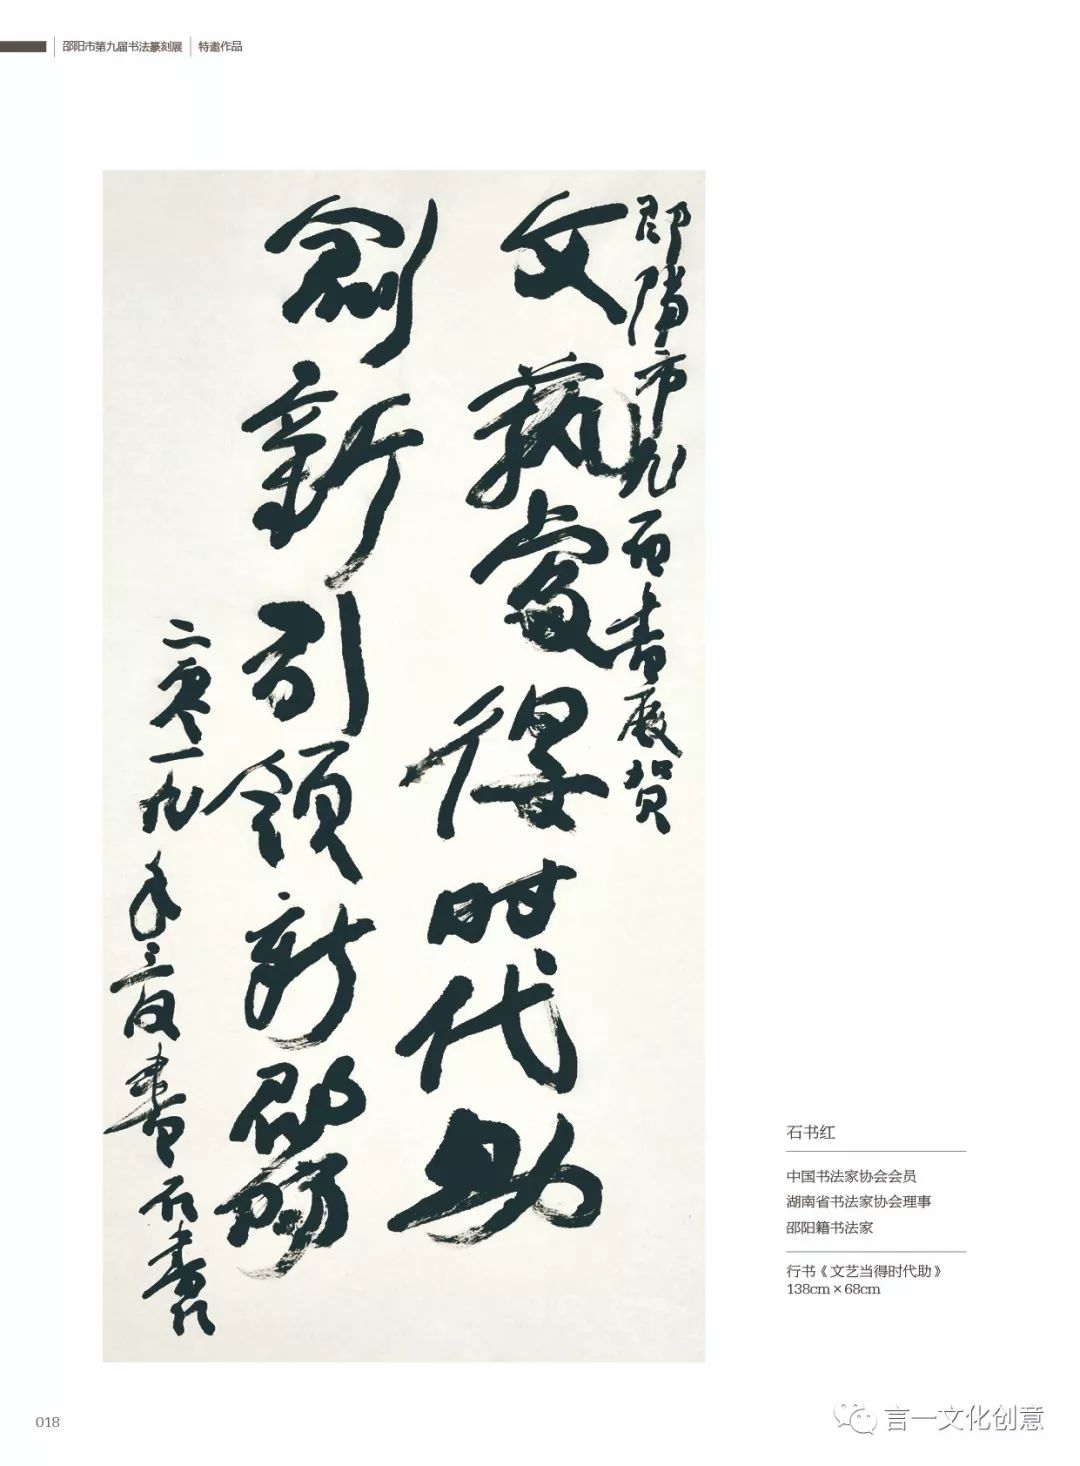 邵阳市第九届书法篆刻展 特邀作品
邵陽市九而書展賀
文藝當得时代助
創新引領新邵陽
二零一九年三月書石書红
石书红
中国书法家协会会员
湖南省书法家协会理事
邵阳籍书法家
行书《文艺当得时代助》
138cm×68cm
018
言一文化创意